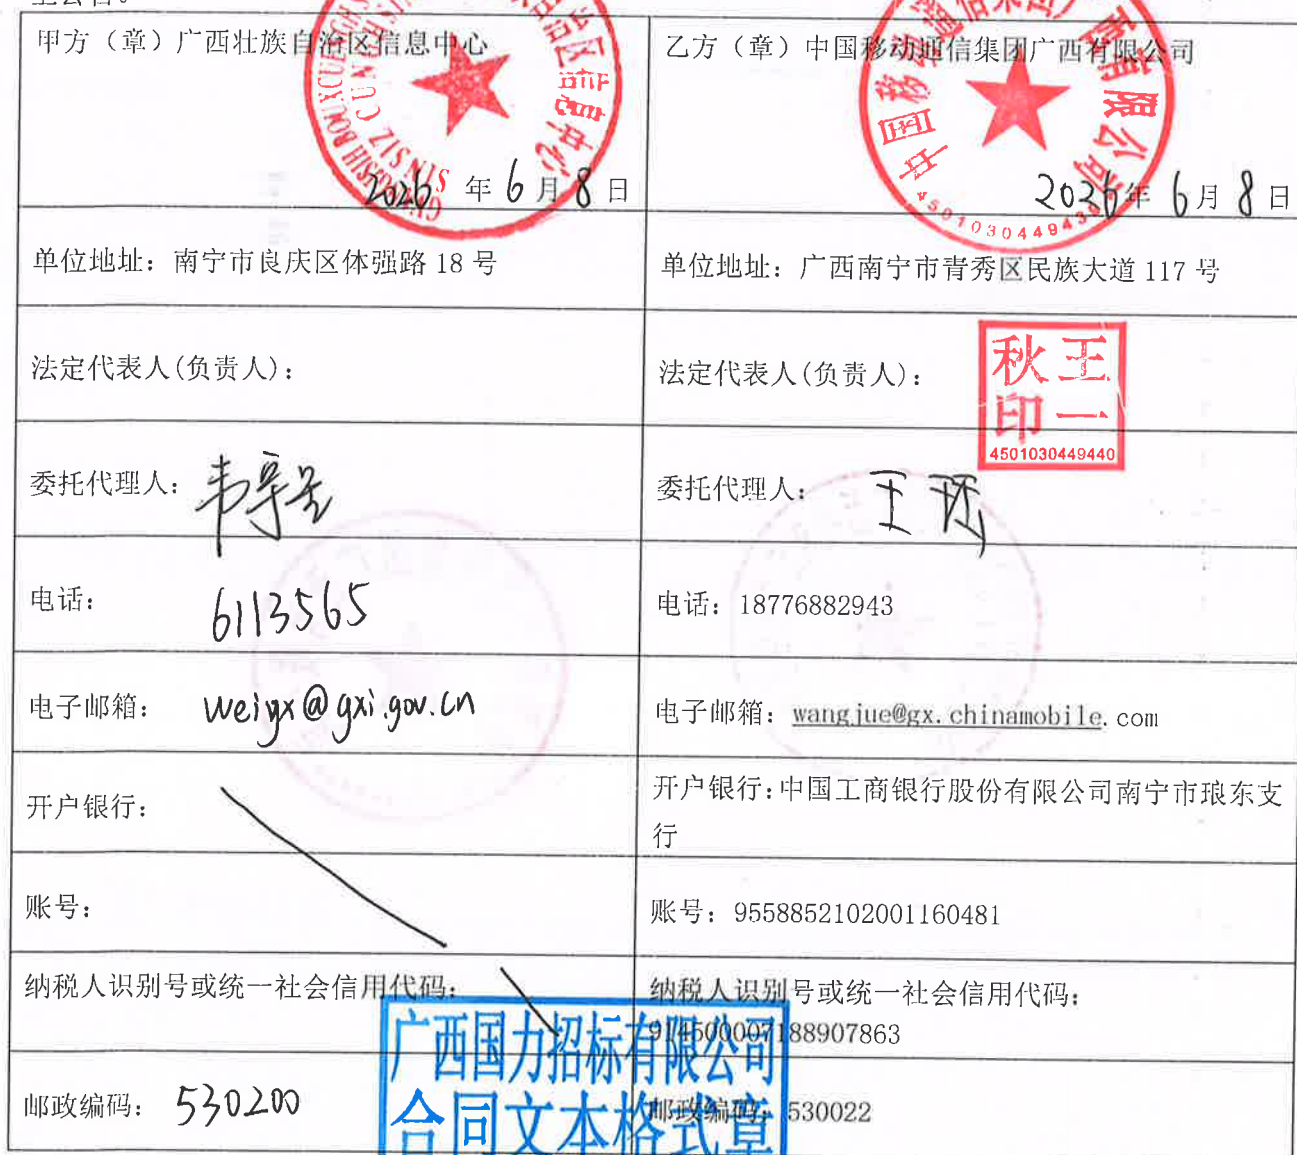 甲方（章）广西壮族自治区信息中心
2026 年 6 月 8 日
乙方（章）中国移动通信集团广西有限公司
2026 年 6 月 8 日
4501030449430
单位地址：南宁市良庆区体强路 18 号
单位地址：广西南宁市青秀区民族大道 117 号
法定代表人(负责人)：
法定代表人(负责人)：
王一
秋印
4501030449440
委托代理人：
委托代理人： 王珏
电话： 6113565
电话：18776882943
电子邮箱： weigx@gxi.gov.cn
电子邮箱：wangjue@gx.chinamobile.com
开户银行：
开户银行:中国工商银行股份有限公司南宁市琅东支
行
账号：
账号：9558852102001160481
纳税人识别号或统一社会信用代码：
纳税人识别号或统一社会信用代码：
914500007188907863
邮政编码： 530200
邮政编码：530022
广西国力招标有限公司
合同文本格式章